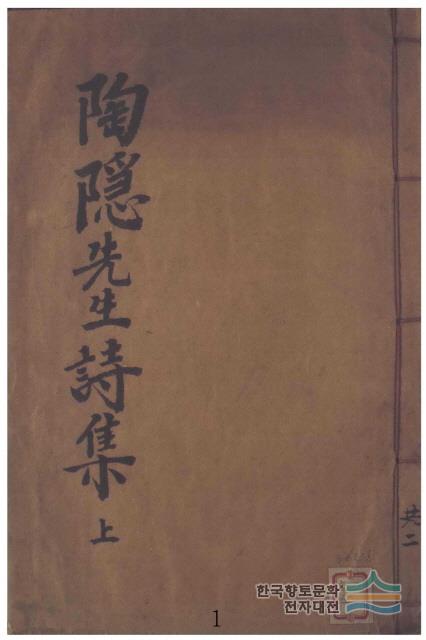 陶隱先生詩集 上
共二
한국향토문화
전자대전
1